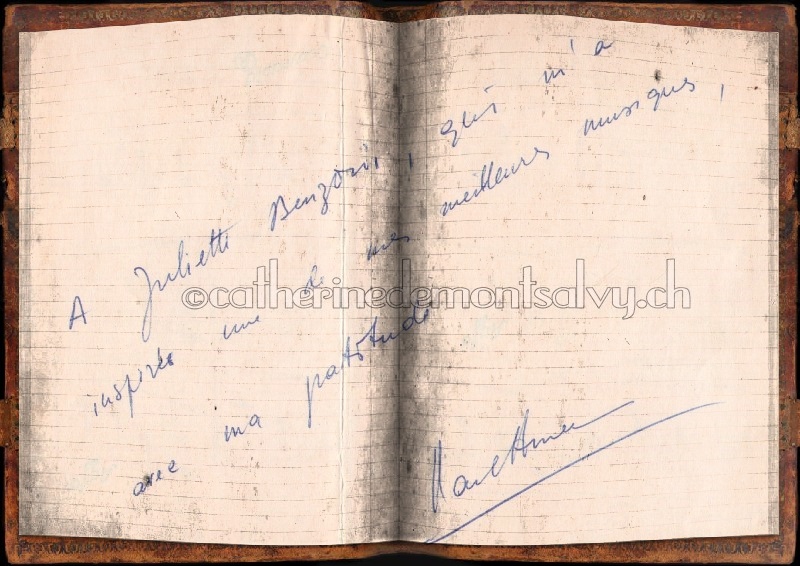 A Juliette Benzoni, qui m'a
inspiré une de mes meilleures musiques,
©catherinedemontsalvy.ch
avec ma gratitude